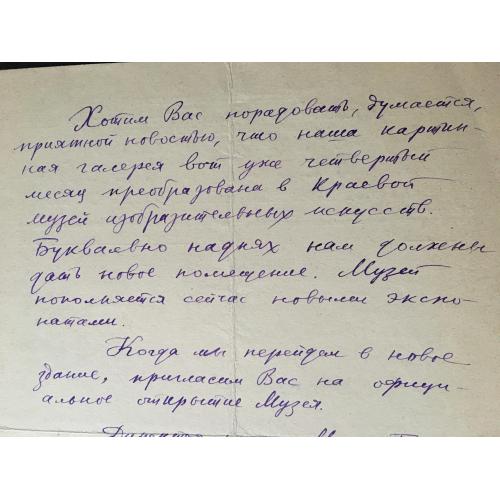 Хотим Вас порадовать, думается,
приятной новостью, что наша картин-
ная галерея вот уже четвертый
месяц преобразована в Краевой
музей изобразительных искусств.
Буквально на днях нам должены
дать новое помещение. Музей
пополняется сейчас новыми экспо-
натами.
Когда мы перейдем в новое
здание, пригласим Вас на офици-
альное открытие Музея.